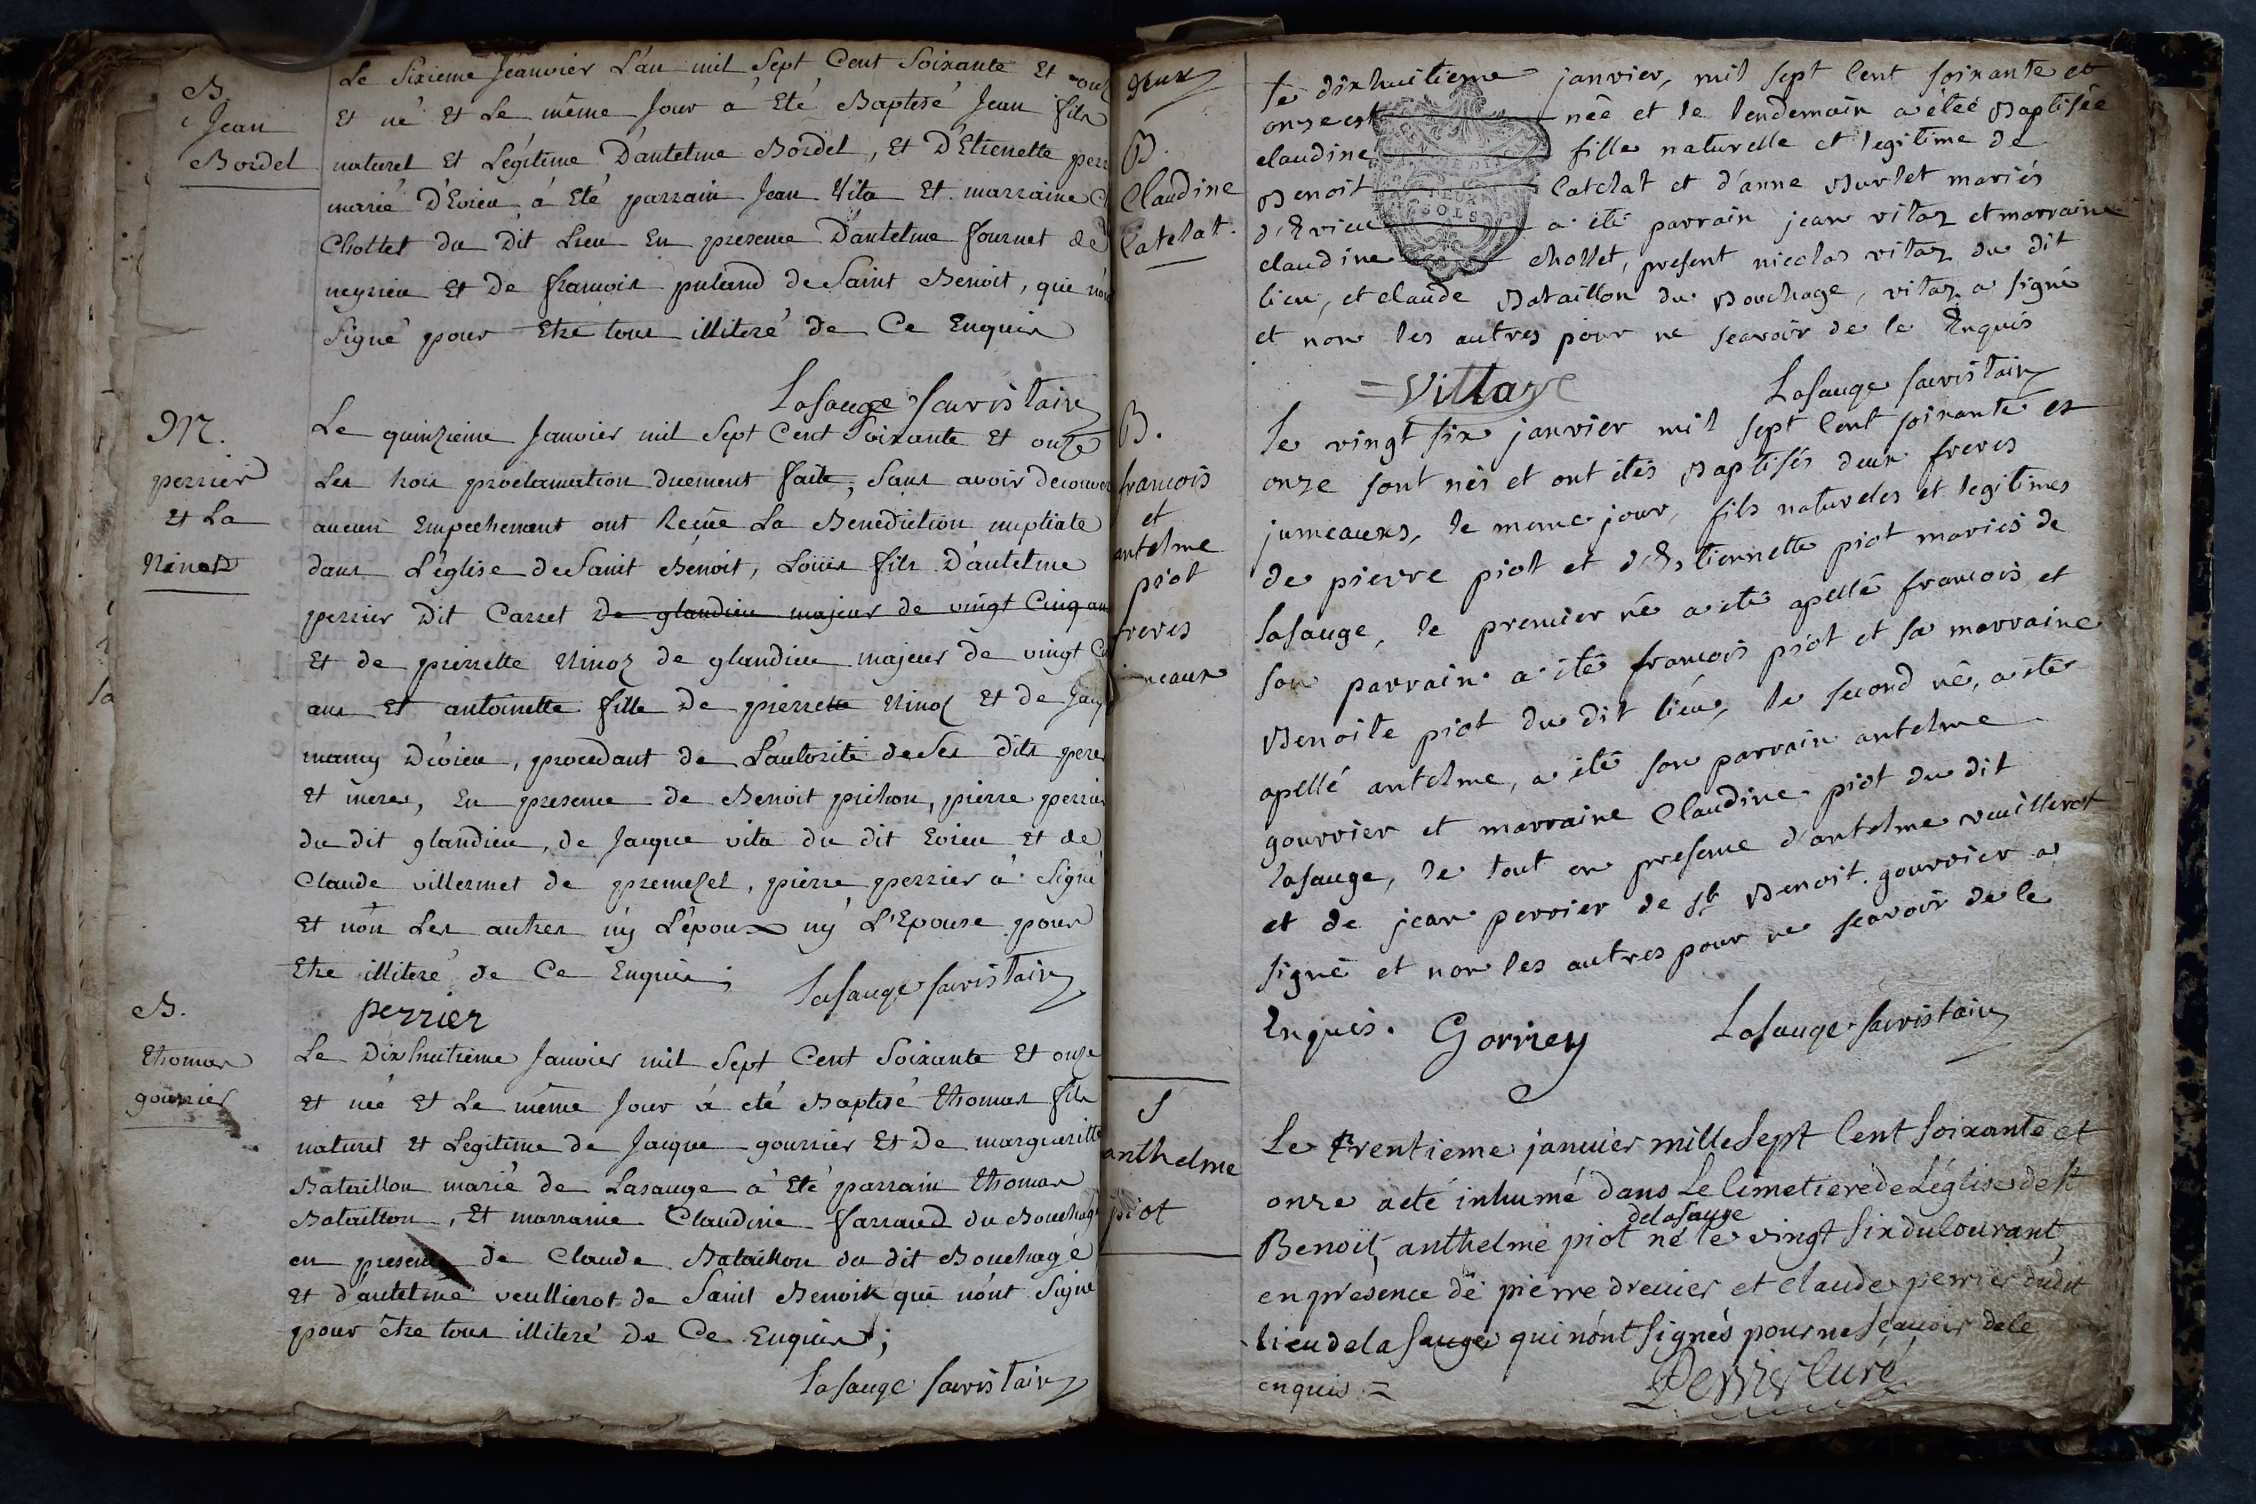 B
Jean
Bordel
Le Sixieme Jeanvier L'an mil Sept Cent Soixante Et onz
Et né Et Le même Jour a Eté Baptisé Jean fils
naturel Et Légitime D'antelme Bordel, Et D'Etienette perr
marié D'Evieu a Eté parrain Jean Vita Et marraine C
Chollet du Dit Lieu En presence D'antelme fournet de
neyrieu Et De francois puland de Saint Benoit, qui n'ont
Signé pour Etre tous illiteré de Ce Enquis
Lasauge Sacristain
M.
perrier
Et La
Ninoz
Le quinzieme Janvier mil Sept Cent Soixante Et onze
Les trois proclamation duement faite, Sans avoir decouver
aucun Empechement ont Reçue La Benediction nuptiale
dans L'église de Saint Benoit, Louis fils D'antelme
perrier Dit Carret De glandieu majeur de vingt Cinq ans
Et de pierrette Ninoz de glandieu majeur de vingt Ci
ans Et antoinette fille De pierrette Ninoz Et de Jacq
mamy D'évieu, procedant de L'autorité de Ses dits pere
Et mere, En presence de Benoit pichon, pierre perrier
du dit glandieu, de Jacque vita du dit Evieu Et de
Claude villermet de premezel, pierre perrier à Signé
Et non Les autres ny L'époux ny L'Epouse pour
Etre illiteré de Ce Enquis;
Lasauge sacristain
perrier
B.
Thomas
gourrier
Le Dixhuitieme Janvier mil Sept Cent Soixante Et onze
Et né Et Le même Jour à eté Baptisé Thomas fils
naturel Et Legitime de Jacque gourrier Et De margueritte
Bataillon marié de Lasauge a Eté parrain Thomas
Bataillon, Et marraine Claudine farraud du Bouchage
en presence de Claude Bataillon du dit Bouchage
Et d'antelme veullierot de Saint Benoit qui n'ont Signé
pour être tous illiteré De Ce Enquis;
Lasauge sacristain
deux
B.
Claudine
Catelat.
le dixhuitieme janvier, mil sept Cent soixante et
onze est née et le lendemain a étéé Baptisée
claudine fille naturelle et legitime de
Benoit Catelat et d'anne Burlet mariés
d'Evieu a été parrain jean vitaz et marraine
claudine chollet, present nicolas vitaz du dit
lieu, et claude Bataillon du Bouchage, vitaz a signé
et non les autres pour ne scavoir de ce Enquis
DEUX
SOLS
= Vittaze
Lasauge sacristain
B.
francois
et
antelme
piot
freres
jumeaux
le vingt six janvier mil sept Cent soixante et
onze sont nés et ont étés Baptisés deux freres
jumeauxs, le meme jour, fils natureles et legitimes
de pierre piot et d'Estiennette piot mariés de
lasauge, le premier né a été apellé francois et
son parrain a été francois piot et sa marraine
Benoite piot du dit lieu, le second né, a été
apellé antelme, a été son parrain antelme
gourrier et marraine Claudine piot du dit
lasauge, le tout en presence d'antelme veuillerot
et de jean perrier de st Benoit. gourrier a
signé et non les autres pour ne scavoir de ce
Enquis.
Gorriey
Lasauge sacristain
S
anthelme
piot
Le trentieme janvier mille Sept Cent soixante et
onze a eté inhumé dans Le Cimetiere de L'église de st
Benoit, anthelme piot né le vingt six du Courant,
de la sauge
en présence de pierre drevier et claude perrier dudit
lieu de la Sauge qui n'ont signés pour ne sçavoir de ce
enquis =
Perrier Curé